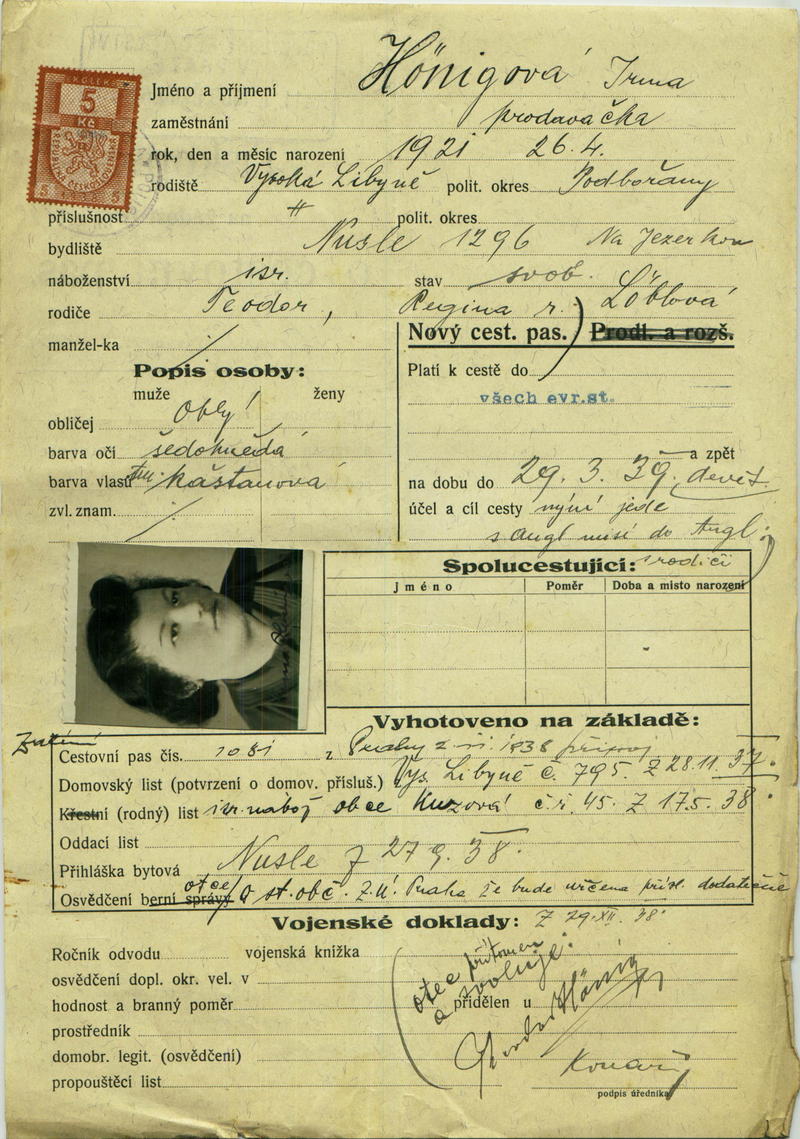 KOLEK
5
Kč
REPUBLIKA ČESKOSLOVENSKÁ
Jméno a příjmení Hönigová Irma
zaměstnání prodavačka
rok, den a měsíc narození 1921 26.4.
rodiště Vysoká Libyně polit. okres Podbořany
příslušnost " polit. okres
bydliště Nusle 1296 Na Jezerkou
náboženství isr. stav svob.
rodiče Teodor, Regina r. Löblová
manžel-ka /
Nový cest. pas. Prodl. a rozš.
Popis osoby:
muže ženy
obličej oblý
barva očí šedohnědá
barva vlasů tm. kaštanová
zvl. znam. /
Platí k cestě do
všech evr.st.
a zpět
na dobu do 29. 3. 39. devět
účel a cíl cesty nyní jede
s angl misí do Angl.
s rodiči
Spolucestující:
Jméno Poměr Doba a místo narození
Vyhotoveno na základě:
Cestovní pas čís. 1081 z Prahy 2 1938
Domovský list (potvrzení o domov. přísluš.) Vys. Libyně č. 795. Z 28.11. 37.
Křestní (rodný) list isr. nábož obce Kuzová č.ř. 45. Z 17.5. 38
Oddací list
Přihláška bytová Nusle z 27 9. 38.
Osvědčení berní správy otce o st. obč. Z.ú. Praha že bude určena přísl. dodatečně
Z 29.XII. 38.
Vojenské doklady:
Ročník odvodu vojenská knížka
osvědčení dopl. okr. vel. v
hodnost a branný poměr přidělen u
prostředník
domobr. legit. (osvědčení)
propouštěcí list
otec přítomen
a svoluje:
Teodor Hönig
podpis úředníka